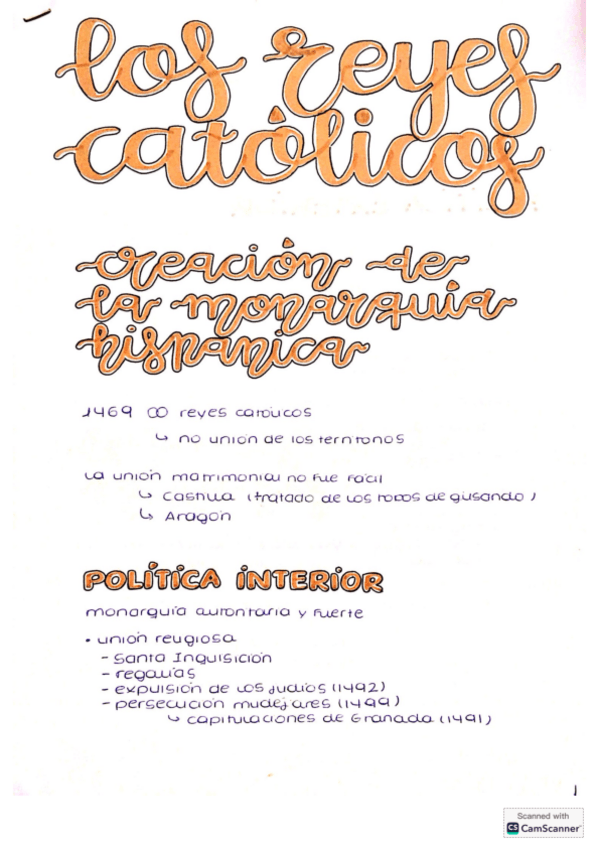 los reyes
católicos
creación de
la monarquía
hispánica
1469 ꝏ reyes católicos
↳ no unión de los territorios
La unión matrimonial no fue fácil
↳ Castilla (tratado de los toros de guisando)
↳ Aragón
POLÍTICA INTERIOR
monarquía autoritaria y fuerte
• unión religiosa
- Santa Inquisición
- regalías
- expulsión de los judíos (1492)
- persecución mudejares (1499)
↳ capitulaciones de Granada (1491)
1
Scanned with
CS CamScanner